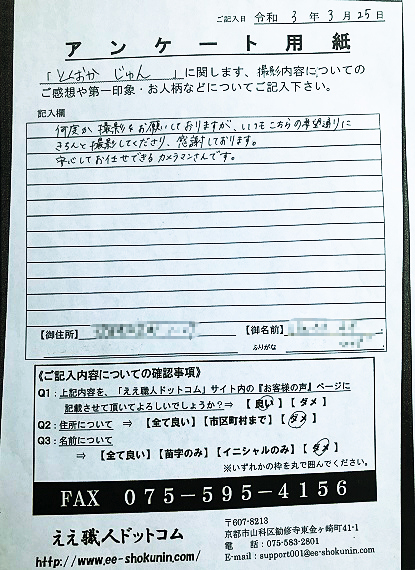 ご記入日 令和 3 年 3 月 25 日
アンケート用紙
「とくおか じゅん 」に関します、撮影内容についての
ご感想や第一印象・お人柄などについてご記入下さい。
記入欄
何度か撮影をお願いしておりますが、いつもこちらの希望通りに
きちんと撮影してくださり、感謝しております。
安心してお任せできるカメラマンさんです。
【御住所】
【御名前】
ふりがな
《ご記入内容についての確認事項》
Q1：上記内容を、「ええ職人ドットコム」サイト内の『お客様の声』ページに
記載させて頂いてよろしいでしょうか？⇒ 【良い】【ダメ】
Q2：住所について ⇒ 【全て良い】【市区町村まで】【ダメ】
Q3：名前について
⇒ 【全て良い】【苗字のみ】【イニシャルのみ】【ダメ】
※いずれかの枠を丸で囲んでください。
FAX 075-595-4156
ええ職人ドットコム
http://www.ee-shokunin.com/
〒607-8213
京都市山科区勧修寺東金ヶ崎町41-1
電 話：075-583-2801
E-mail：support001@ee-shokunin.com